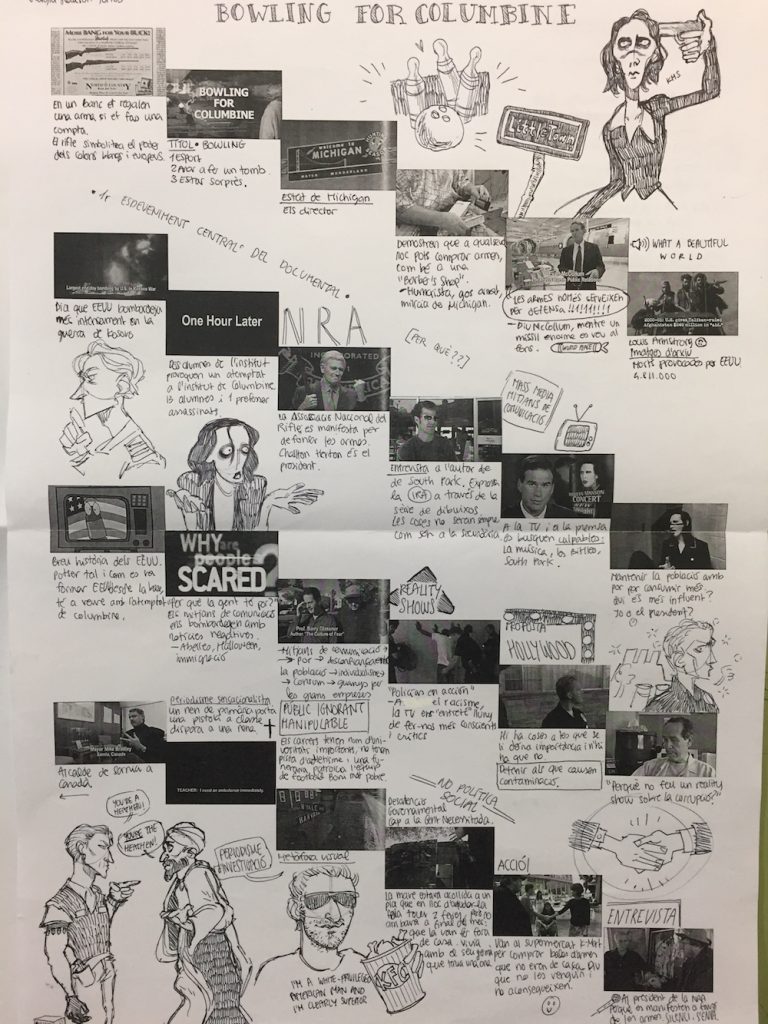 BOWLING FOR COLUMBINE
MORE BANG FOR YOUR BUCK!
NORTH COUNTRY
En un banc et regalen
una arma si et fas una
compta.
El rifle simbolitza el poder
dels colons blancs i europeus.
BOWLING
FOR
COLUMBINE
TÍTOL • BOWLING
1 ESPORT
2 Anar a fer un tomb.
3 Estar sorprès.
welcome to
MICHIGAN
WATER WONDERLAND
Estat de Michigan
Els director
Little Town
KMS
Demostren que a qualsevol
lloc pots comprar armes,
com bé a una
"Barber's Shop".
- Humorista, gos armat,
milícia de Michigan.
LES ARMES NOMÉS SERVEIXEN
PER DEFENSA !!!!!!!!!
- Diu McCollum, mentre un
míssil enorme es veu al
fons.
WHAT A BEAUTIFUL
WORLD
2000-01: U.S. gives Taliban-ruled
Afghanistan $245 million in "aid."
Louis Armstrong
Imatges d'arxiu
Morts provocades per EEUU
4.211.000
"1r ESDEVENIMENT CENTRAL" DEL DOCUMENTAL.
Largest one day bombing by U.S. in Kosovo War
Dia que EEUU bombardeja
més intensament en la
guerra de Kosovo
One Hour Later
Dos alumnes de l'institut
provoquen un atemptat
a l'institut de Columbine.
13 alumnes i 1 professor
assassinats.
NRA
INCORPORATED
La Associació Nacional del
Rifle es manifesta per
defensar les armes.
Charlton Heston és el
president.
[PER QUÈ??]
MASS MEDIA
MITJANS DE
COMUNICACIÓ
Entrevista a l'autor de
de South Park. Exposa
la (IRA) a través de la
sèrie de dibuixos.
Les coses no seran sempre
com són a la secundària
MARILYN MANSON
CONCERT
A la TV i a la premsa
es busquen culpables:
la música, les bitlles,
South Park.
Mantenir la població amb
por per consumir més
Qui és més influent?
Jo o el president?
Breu història dels EEUU.
Potter tal i com es va
formar EEUU desde la base,
té a veure amb l'atemptat
de columbine.
WHY are
people so
SCARED?
Per què la gent té por?
Els mitjans de comunicació
ens bombardejen amb
notícies negatives.
- Abelles, Halloween,
immigració
Prof. Barry Glassner
Author "The Culture of Fear"
Mitjans de comunicació →
→ Por → desconfiança
la població → individualisme →
→ Consum → guanys per
les grans empreses
PUBLIC IGNORANT
MANIPULABLE
REALITY
SHOWS
"Policías en acción"
el racisme,
la TV ens "entreté" lluny
de fer-nos més conscients i
crítics
PROPOSTA
HOLLYWOOD
Hi ha casos a les que se
li dona importància i n'hi
ha que no
Detenir als que causen
contaminació.
"Perquè no feu un reality
show sobre la corrupció?"
Mayor Mike Bradley
Sarnia, Canada
Alcalde de Sarnia a
Canadà
Periodisme sensacionalista
un nen de primària porta
una pistola a classe i
dispara a una nena.
TEACHER: I need an ambulance immediately.
Metàfora visual
NO POLÍTICA
SOCIAL
Desatenció
Governamental
cap a la Gent Necessitada.
La mare estava acollida a un
pla que en lloc d'ajudar-la
feia tenir 2 feines, però no
arribava a final de mes
que la van fer fora
de casa. Vivia
amb el seu germà
que tenia una arma
ACCIÓ!
Van al supermercat K-Mart
per comprar bales d'armes
que no eren de caça. Diu
que no les venguin i
ho aconsegueixen.
ENTREVISTA
Al president de la NRA
Perquè es manifesten a favor
de les armes
SILENCI
YOU'RE A
HEATHEN!
YOU'RE THE
HEATHEN!
PERIODISME
D'INVESTIGACIÓ
I'M A WHITE-PRIVILEGED
AMERICAN MAN AND
I'M CLEARLY SUPERIOR
KFC